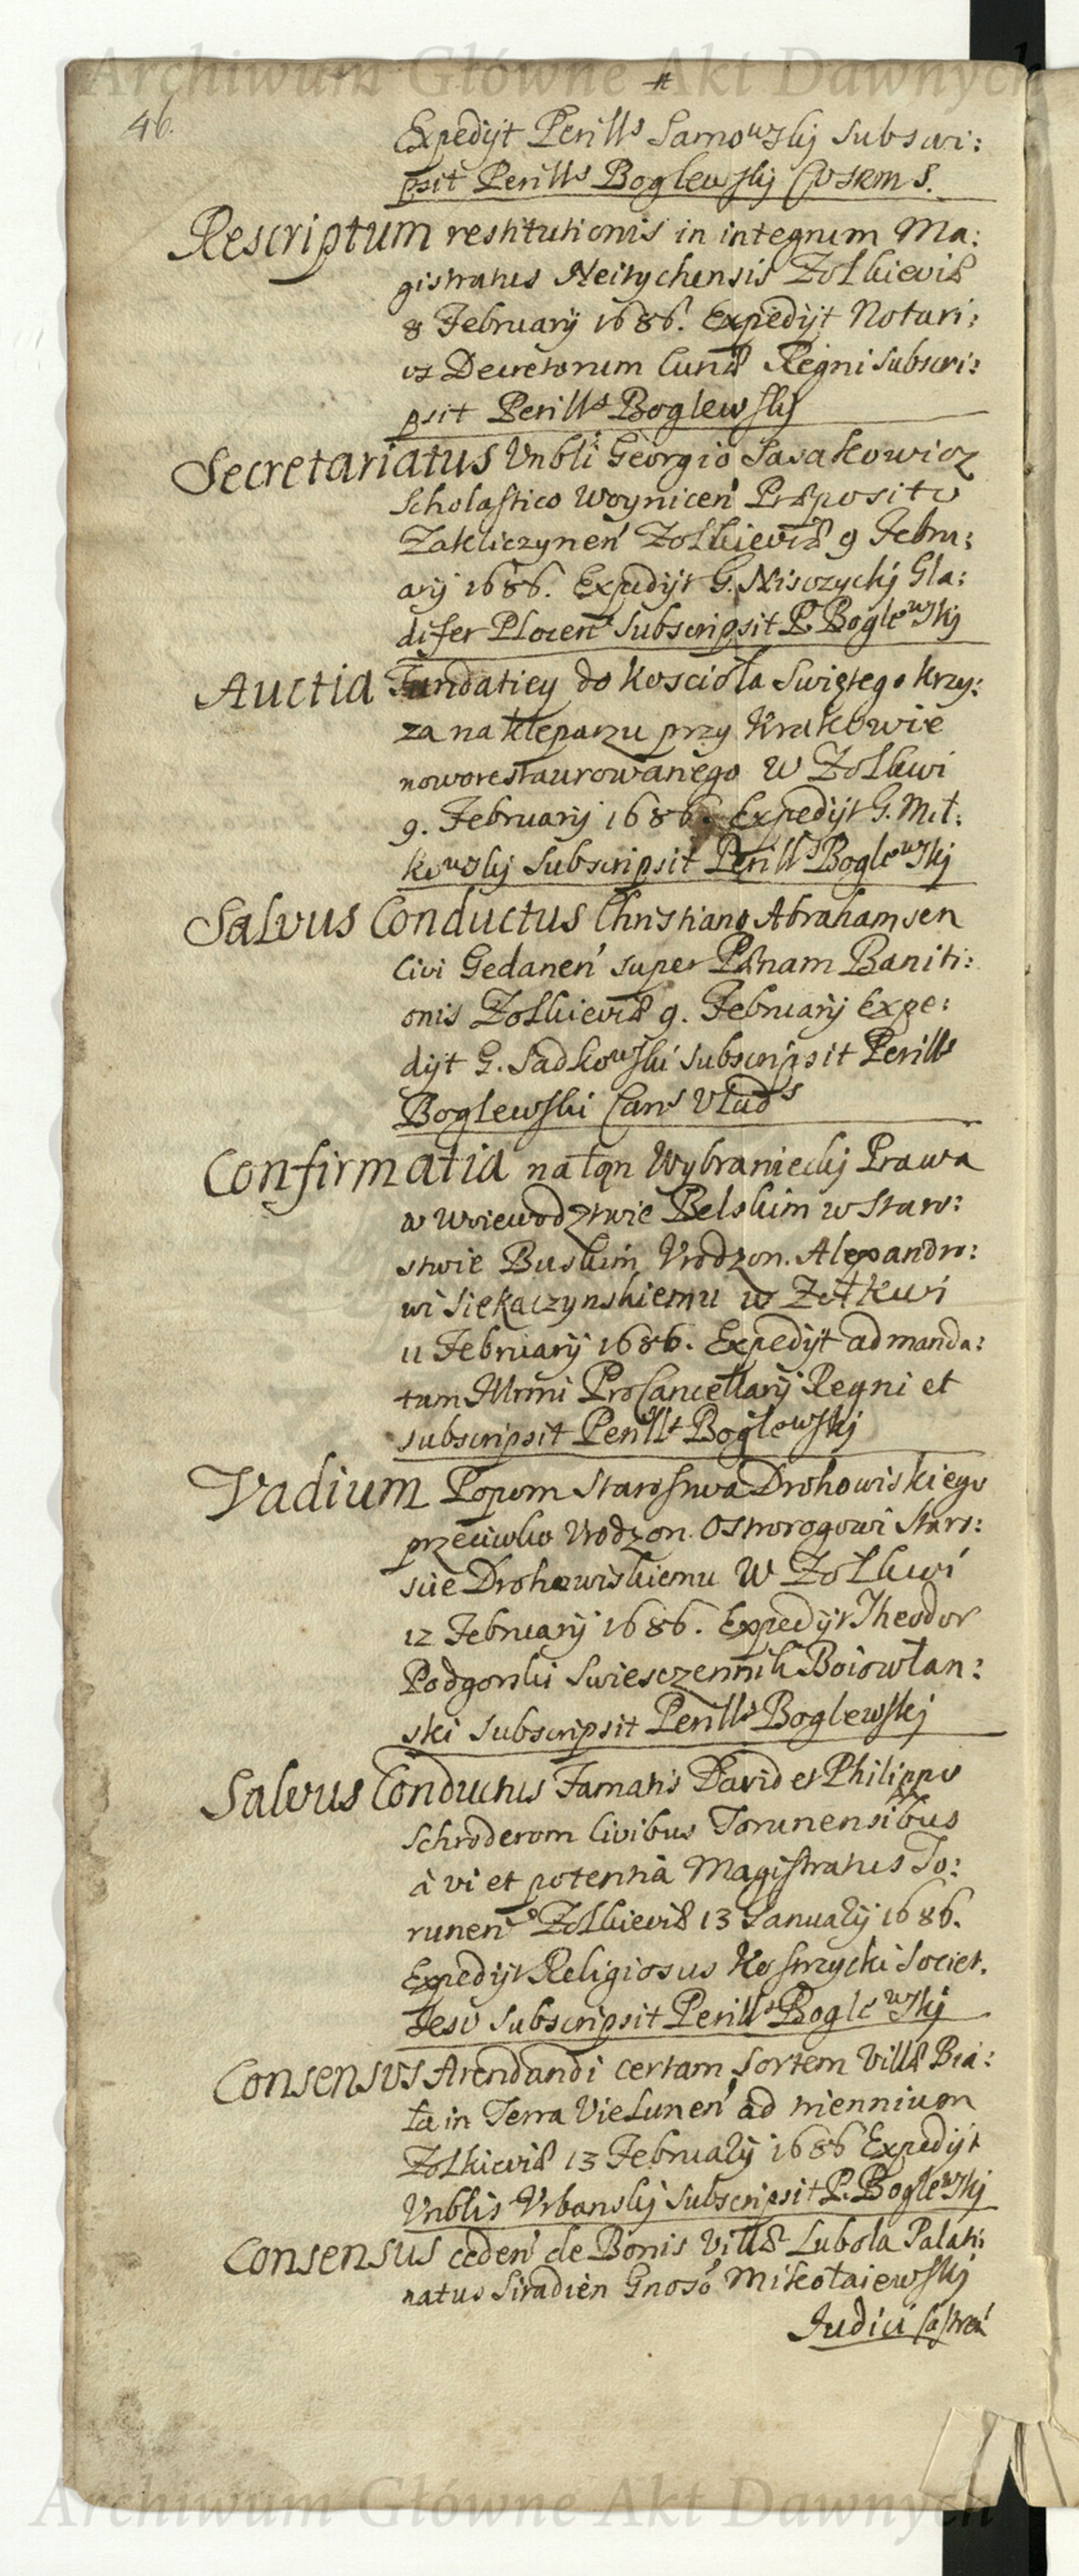 Archiwum Główne Akt Dawnych
46.
Expedijt Perills Sarnowskij Subscri:
psit Perills Boglewskij
Rescriptum restitutionis in integrum Ma:
gistratus Neitychensis Zolkieviæ
8 Februarij 1686. Expedijt Notari:
us Decretorum Curiæ Regni Subscri:
psit Perills Boglewskij
Secretariatus Vnbli Georgio Sasakowicz
Scholastico Woynicen Præposito
Zakliczynen Zolkieviæ 9 Febru:
arij 1686. Expedijt G. Nisczyckij Gla:
difer Plocen Subscripsit P. Boglewskij
Auctia Fundatiey do Koscioła Swiętego Krzy:
za na Kleparzu przy Krakowie
noworestaurowanego w Zolkwi
9. Februarij 1686. Expedijt G. Mił:
kowskij Subscripsit Perills Boglewskij
Salvus Conductus Christiano Abrahamsen
Civi Gedanen super Pænam Baniti:
onis Zolkieviæ 9. Februarij Expe:
dijt G. Sadkowski Subscripsit Perills
Boglewski Cans Vlads
Confirmatia na łąn Wybranieckij Prawa
w woiewodztwie Belskim w Staro:
stwie Buskim Vrodzon. Alexandro:
wi Siekaczynskiemu w Zołkwi
11 Februarij 1686. Expedijt ad manda:
tum Illmi ProCancellarij Regni et
subscripsit Perills Boglewskij
Vadium Popom Starostwa Drohowiskiego
przeciwko Vrodzon. Ostrorogowi Staro:
scie Drohowiskiemu W Zolkwi
12 Februarij 1686. Expedijt Theodor
Podgorski Swiesczennik Boiowłan:
ski Subscripsit Perills Boglewskij
Salvus Conductus Famatis David et Philippo
Schroderom Civibus Torunensibus
à vi et potentia Magistratus To:
runen Zolkieviæ 13 Januarij 1686.
Expedijt Religiosus Kostrzycki Societ.
Jesu Subscripsit Perills Boglewskij
Consensus Arendandi certam Sortem Villæ Bia:
ła in Terra Vielunen ad triennium
Zolkieviæ 13 Februarij 1686 Expedijt
Vnblis Vrbanskij Subscripsit P. Boglewskij
Consensus ceden de Bonis Villæ Lubola Palati:
natus Siradien Gnoso Mikołaiewskij
Judici Castren
Archiwum Główne Akt Dawnych